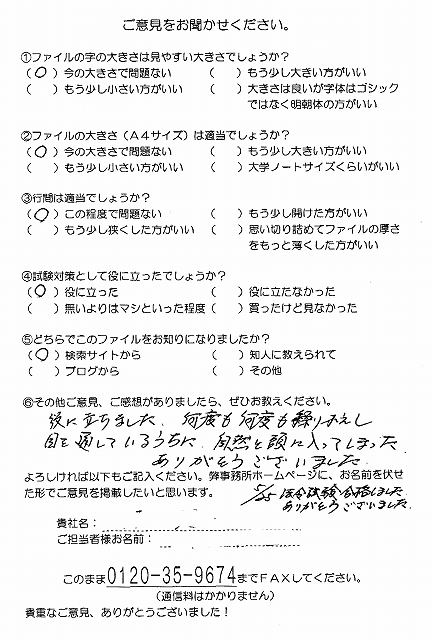 ご意見をお聞かせください。
①ファイルの字の大きさは見やすい大きさでしょうか？
（○）今の大きさで問題ない　（　）もう少し大きい方がいい
（　）もう少し小さい方がいい　（　）大きさは良いが字体はゴシック
ではなく明朝体の方がいい
②ファイルの大きさ（Ａ４サイズ）は適当でしょうか？
（○）今の大きさで問題ない　（　）もう少し大きい方がいい
（　）もう少し小さい方がいい　（　）大学ノートサイズくらいがいい
③行間は適当でしょうか？
（○）この程度で問題ない　（　）もう少し開けた方がいい
（　）もう少し狭くした方がいい　（　）思い切り詰めてファイルの厚さ
をもっと薄くした方がいい
④試験対策として役に立ったでしょうか？
（○）役に立った　（　）役に立たなかった
（　）無いよりはマシといった程度（　）買ったけど見なかった
⑤どちらでこのファイルをお知りになりましたか？
（○）検索サイトから　（　）知人に教えられて
（　）ブログから　（　）その他
⑥その他ご意見、ご感想がありましたら、ぜひお教えください。
役に立ちました。何度も何度も繰り返えし
目を通しているうちに、自然と頭に入ってしまった
ありがとうございました。
よろしければ以下もご記入ください。弊事務所ホームページに、お名前を伏せ
た形でご意見を掲載したいと思います。
5/25 法令試験合格しました
ありがとうございました。
貴社名：
ご担当者様お名前：
このまま0120-35-9674までＦＡＸしてください。
（通信料はかかりません）
貴重なご意見、ありがとうございました！